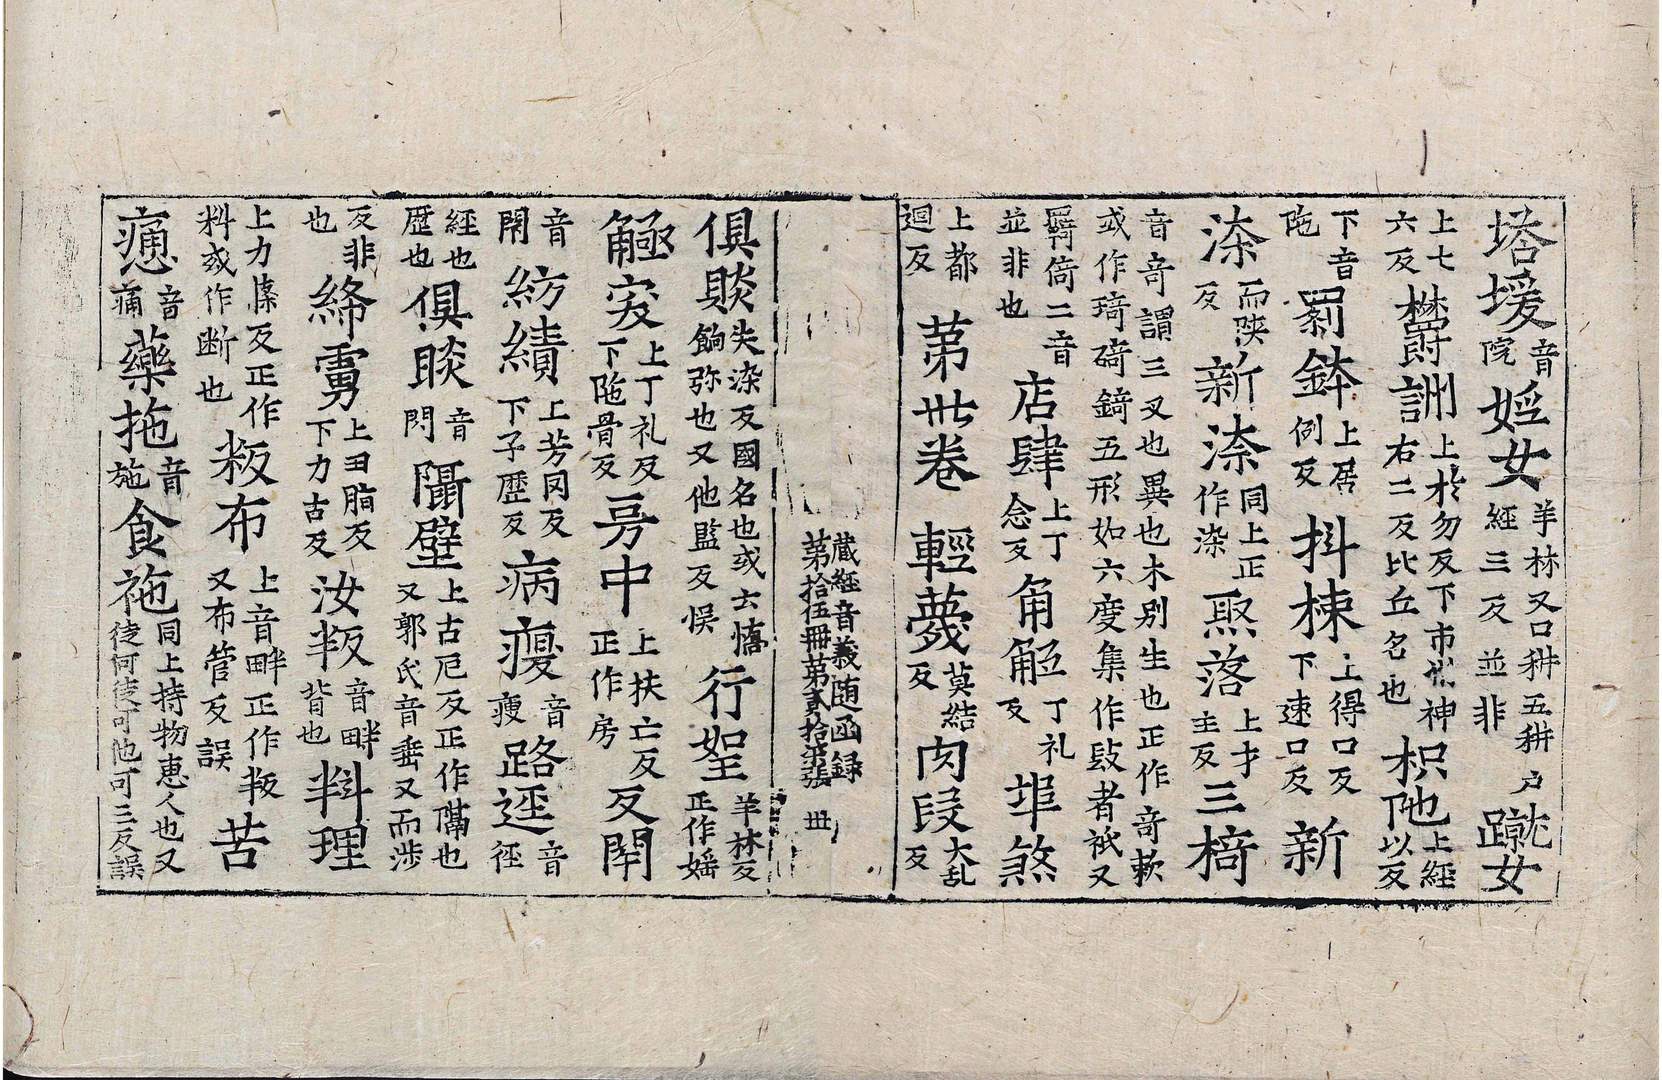 塔堷音院婬女羊林又口耕五耕戶經三反並非蹴女
上七六反欝詶上扵勿反下市㳅神右二反比丘名也枳阤上經以反
下音阤罽鉢上居例反抖梀上得口反下速口反新
㴃而陝反新㴃同上正作染聚落上才主反三㭲
音奇謂三叉也異也木別生也正作奇㰟或作琦碕錡五形如六度集作攱者衹又
羇倚二音並非也店肆上丁念反角觧丁礼反埠煞
上都迴反苐卅卷輕薎莫結反肉段大乱反
藏經音義随函録苐拾伍冊苐貳拾柒張 丗
俱睒失染反國名也或云㦗餉弥也又他監反悮行婬羊林反正作婬
觝突上丁礼反下陁骨反㝑中上扶亡反正作房反閇
音閇紡績上芳冈反下子歷反病瘦音瘦路逕音徑
經也歷也俱睒音閃隔壁上古厄反正作隔也又郭氏音垂又而涉
反非也締雩上曰脂反下力古反汝叛音畔背也料理
上力條反正作料或作断也粄布上音畔正作叛又布管反誤苦
㾓音痛藥拖音施食袘同上持物惠人也又徒何徒可他可三反誤